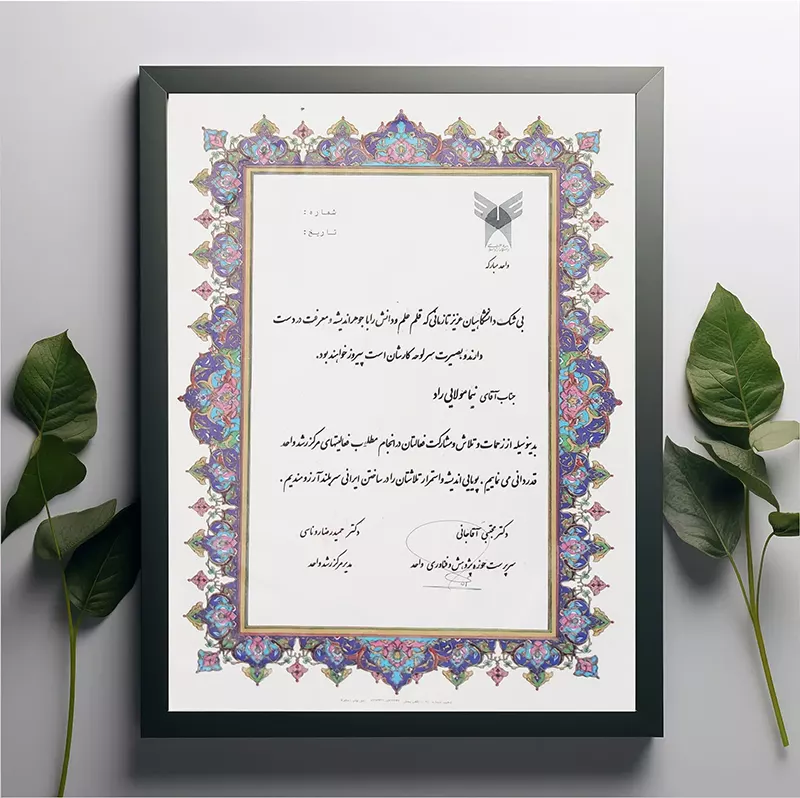 شماره :
تاریخ :
واحد مبارکه
بی شک دانشگاهیان عزیز تا زمانی که قلم علم و دانش را با جوهر اندیشه و معرفت در دست
دارند و بصیرت سرلوحه کارشان است پیروز خواهند بود.
جناب آقای نیما مولایی راد
بدینوسیله از زحمات و تلاش و مشارکت فعالتان در انجام مطلوب فعالیتهای مرکز رشد واحد
قدردانی می نماییم . پویایی اندیشه و استمرار تلاشتان را در ساختن ایرانی سربلند آرزومندیم .
دکتر مجتبی آقاجانی
دکتر حمیدرضا
سرپرست حوزه پژوهش و فناوری واحد
مدیر مرکز رشد واحد